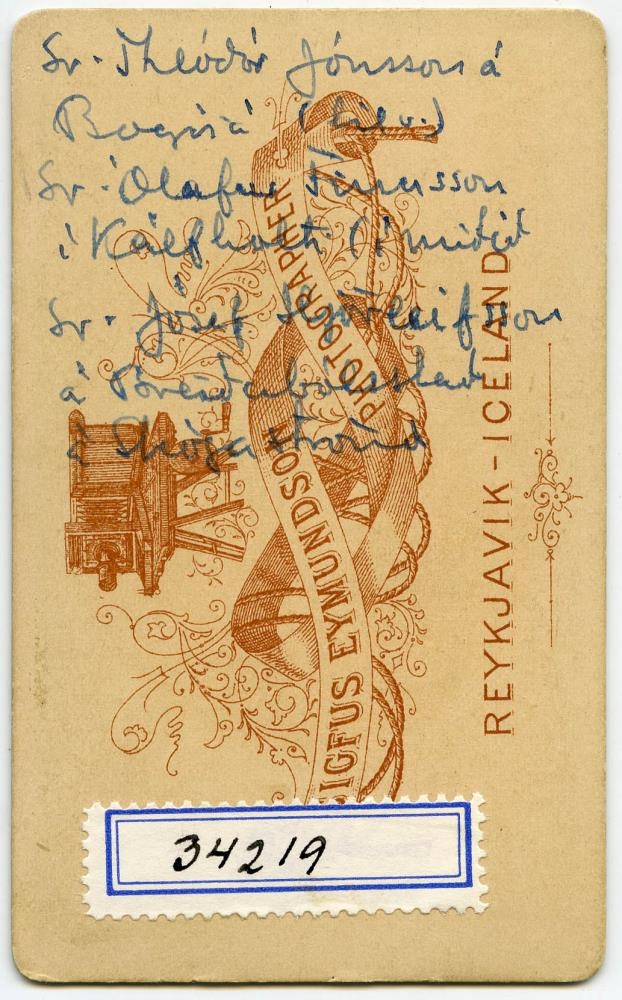 Sr. Theódór Jónsson á
Bægisá
Sr. Ólafur Finnsson
í Kálfholti (í miðið
Sr. Jósef Hjörleifsson
á Breiðabólsstað
á Skógarströnd
SIGFUS EYMUNDSON
PHOTOGRAPHER
REYKJAVIK - ICELAND
34219